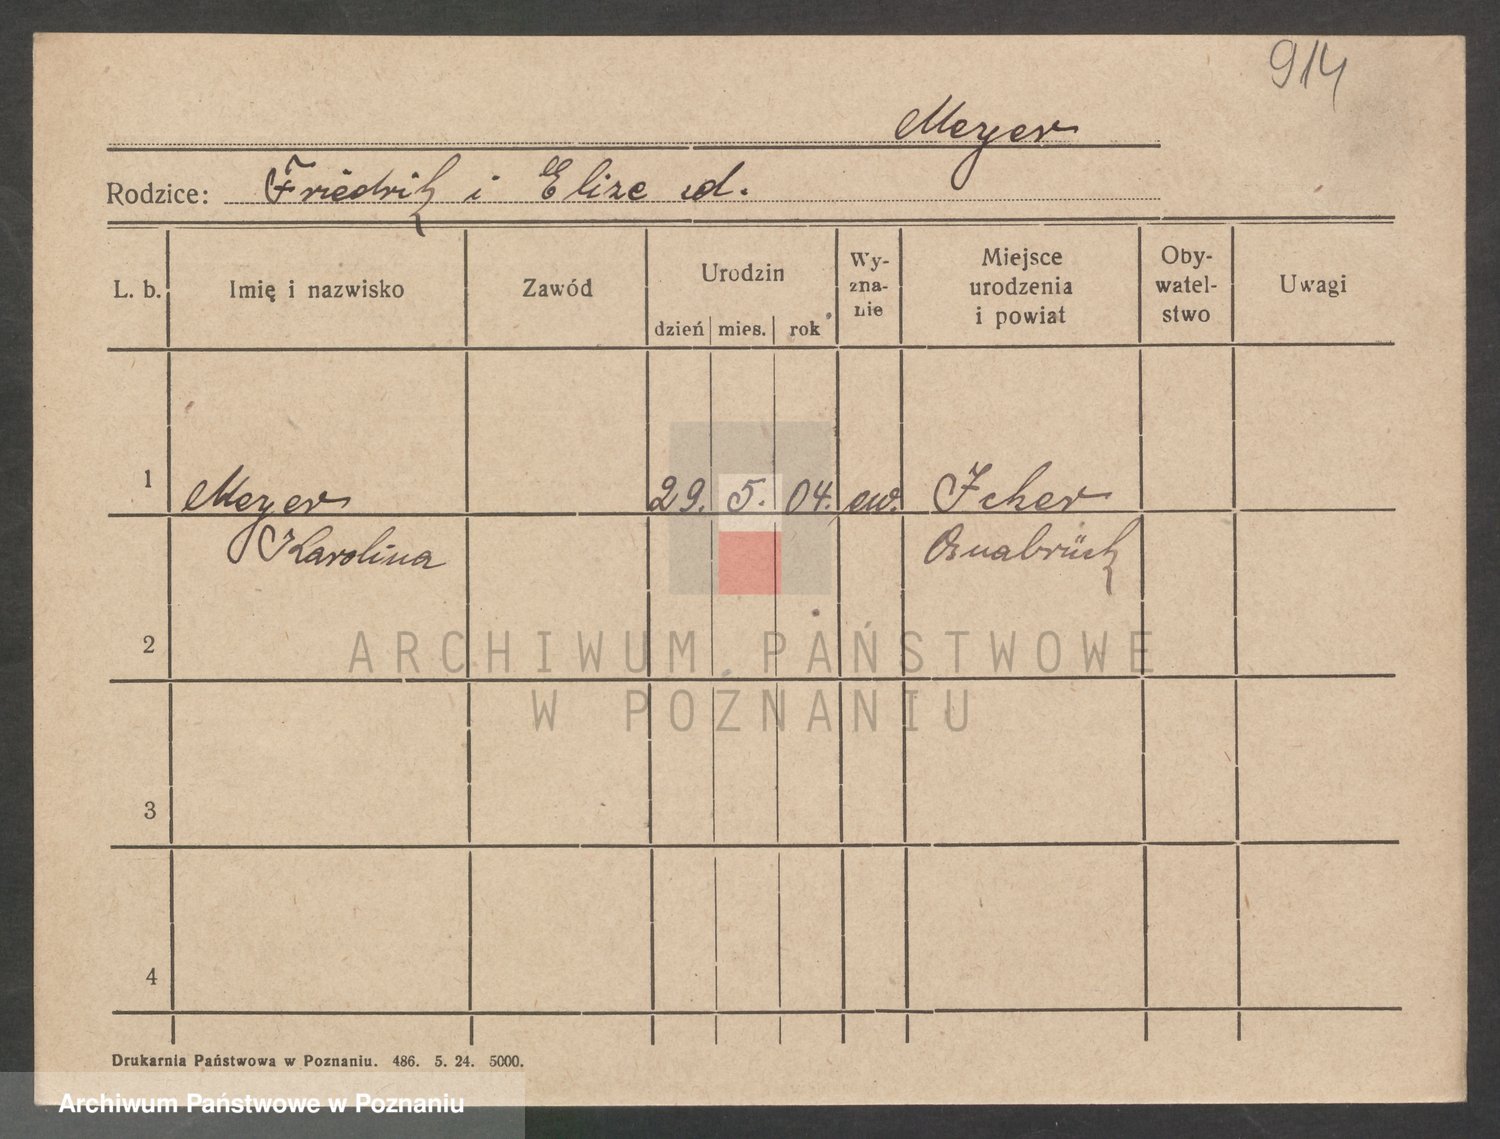 914
Meyer
Rodzice: Friedrik i Elize d.
L. b. Imię i nazwisko Zawód Urodzin dzień mies. rok Wy-zna-nie Miejsce urodzenia i powiat Oby-watel-stwo Uwagi
1 Meyer 29. 5. 04. ew. Icker
Karolina Osnabrück
2
ARCHIWUM PAŃSTWOWE
W POZNANIU
3
4
Drukarnia Państwowa w Poznaniu. 486. 5. 24. 5000.
Archiwum Państwowe w Poznaniu